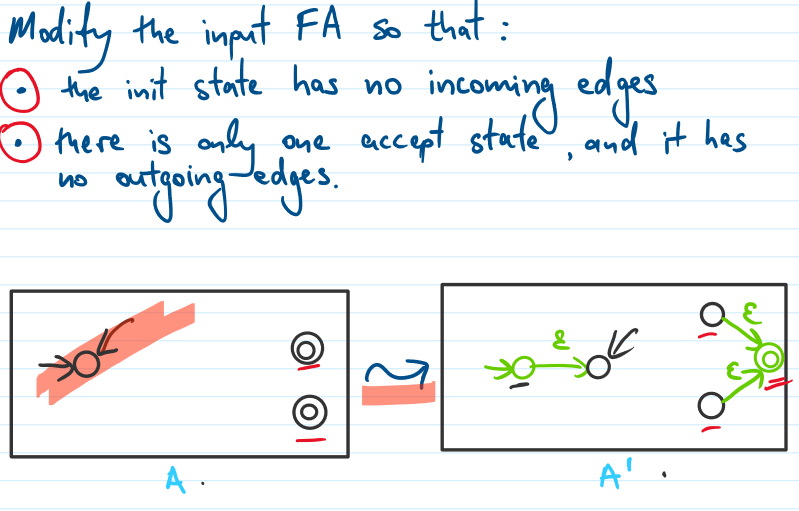 Modify the input FA so that :
• the init state has no incoming edges
• there is only one accept state, and it has
no outgoing edges.
ε
ε
ε
A .
A' .